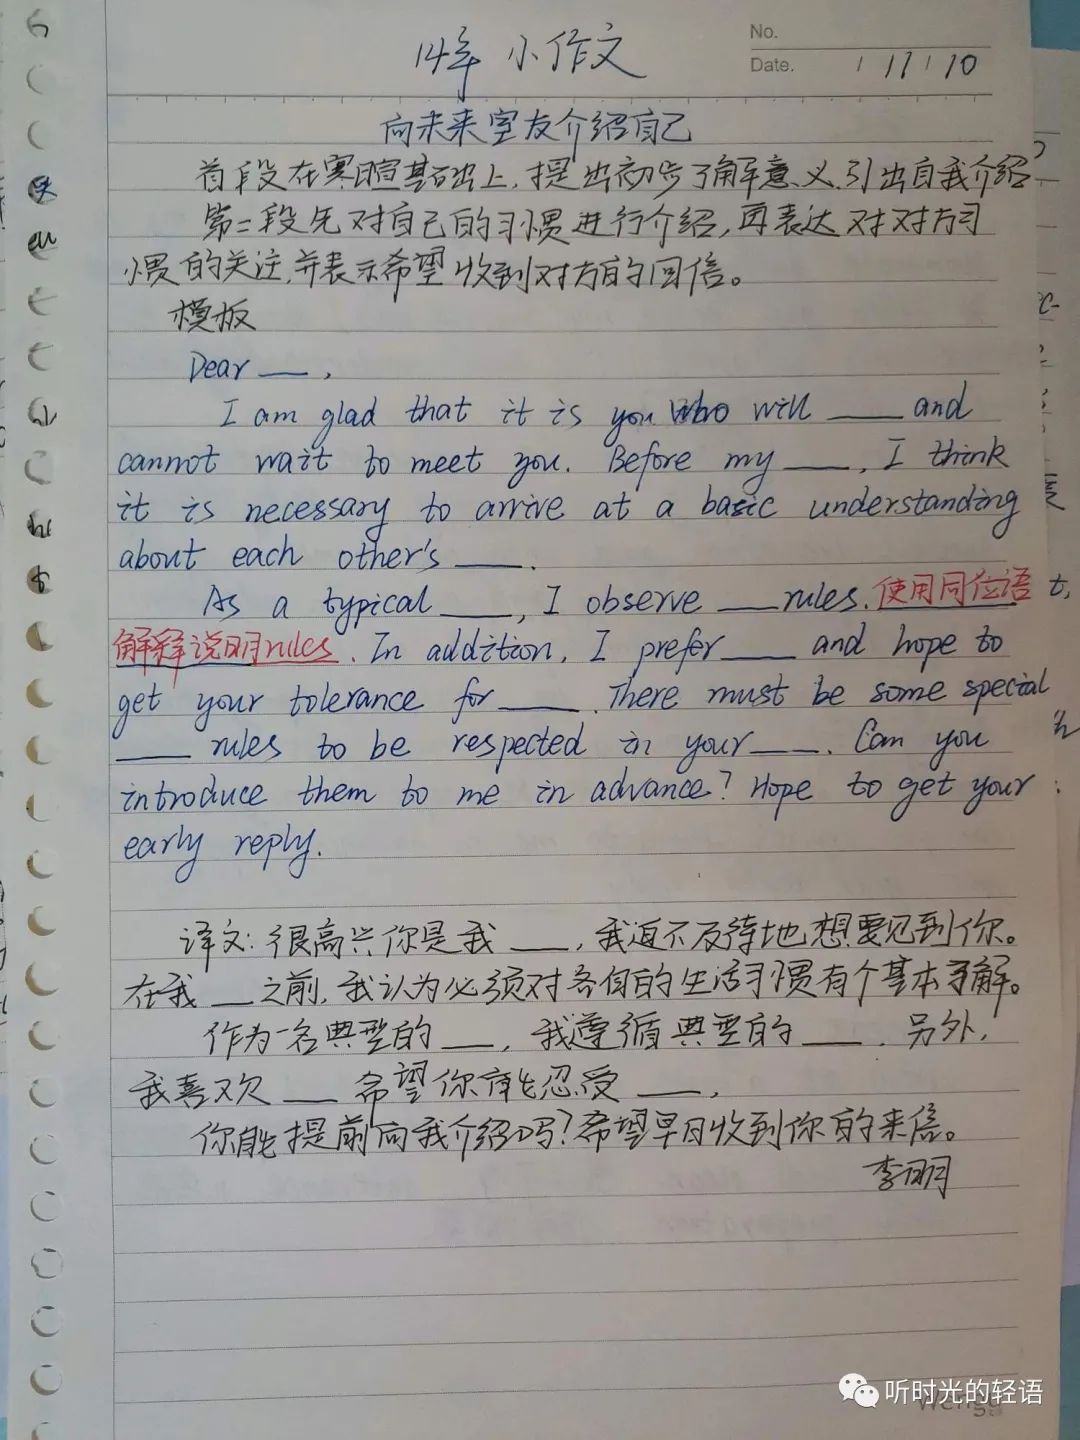 No.
Date. / 11 / 10
14年 小作文
向未来室友介绍自己
首段在寒暄基础上,提出初步了解意义,引出自我介绍
第二段先对自己的习惯进行介绍,再表达对对方习
惯的关注,并表示希望收到对方的回信。
模板
Dear ___ ,
I am glad that it is you who will ___ and
cannot wait to meet you. Before my ___, I think
it is necessary to arrive at a basic understanding
about each other's ___.
As a typical ___, I observe ___ rules. 使用同位语
解释说明rules. In addition, I prefer ___ and hope to
get your tolerance for ___. There must be some special
___ rules to be respected in your ___. Can you
introduce them to me in advance? Hope to get your
early reply.
译文: 很高兴你是我 ___, 我迫不及待地想要见到你。
在我 ___ 之前, 我认为必须对各自的生活习惯有个基本了解。
作为一名典型的 ___, 我遵循典型的 ___. 另外,
我喜欢 ___ 希望你能忍受 ___,
你能提前向我介绍吗?希望早日收到你的来信。
李明
听时光的轻语